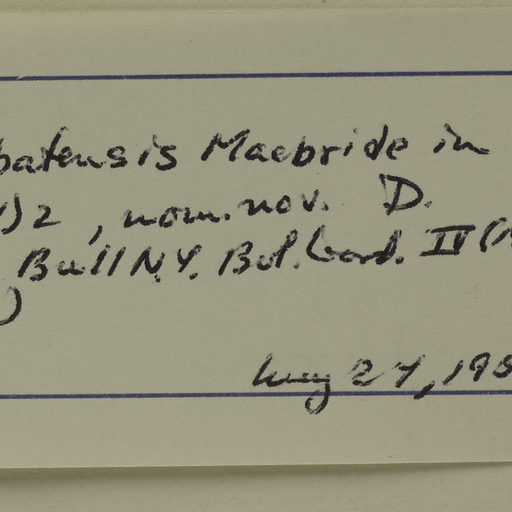 batensis Macbride in
)2, nom. nov. D.
Bull N.Y. Bot. Gard. IV (
)
Aug 24, 195